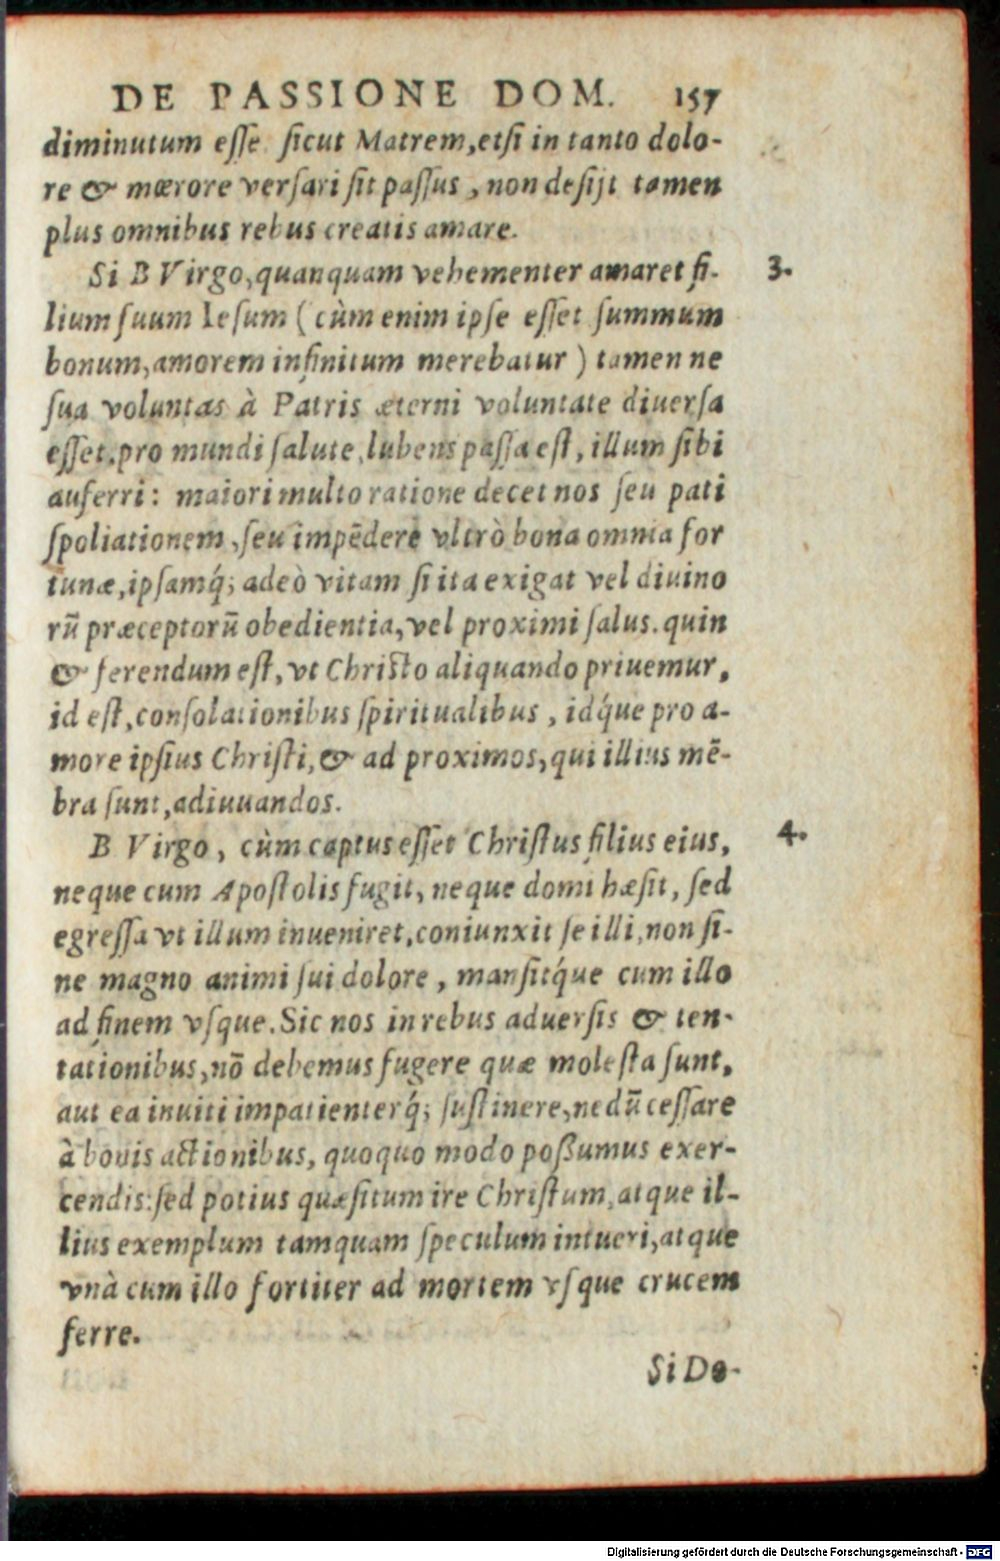 DE PASSIONE DOM. 157
diminutum eſſe ſicut Matrem, etſi in tanto dolo-
re & mœrore verſari ſit paſſus, non deſijt tamen
plus omnibus rebus creatis amare.
Si B Virgo, quanquam vehementer amaret fi- 3.
lium ſuum Ieſum (cùm enim ipſe eſſet ſummum
bonum, amorem infinitum merebatur) tamen ne
ſua voluntas à Patris æterni voluntate diuerſa
eſſet, pro mundi ſalute, lubens paſſa eſt, illum ſibi
auferri: maiori multo ratione decet nos ſeu pati
ſpoliationem, ſeu impēdere vltrò bona omnia for
tunæ, ipſamq́; adeò vitam ſi ita exigat vel diuino
rū præceptorū obedientia, vel proximi ſalus. quin
& ferendum eſt, vt Chriſto aliquando priuemur,
id eſt, conſolationibus ſpiritualibus, idq́ue pro a-
more ipſius Chriſti, & ad proximos, qui illius mē-
bra ſunt, adiuuandos.
B Virgo, cùm captus eſſet Chriſtus filius eius, 4.
neque cum Apoſtolis fugit, neque domi hæſit, ſed
egreſſa vt illum inueniret, coniunxit ſe illi, non ſi-
ne magno animi ſui dolore, manſitq́ue cum illo
ad finem vſque. Sic nos in rebus aduerſis & ten-
tationibus, nō debemus fugere quæ moleſta ſunt,
aut ea inuiti impatienterq́; ſuſtinere, nedū ceſſare
à bonis actionibus, quoquo modo poßumus exer-
cendis: ſed potius quæſitum ire Chriſtum, atque il-
lius exemplum tamquam ſpeculum intueri, atque
vnà cum illo fortiter ad mortem vſque crucem
ferre.
Si De-
Digitalisierung gefördert durch die Deutsche Forschungsgemeinschaft - DFG